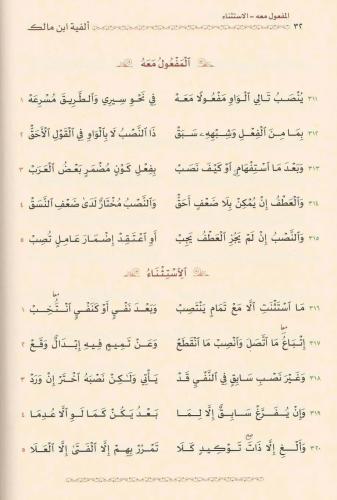 المفعول معه - الاستثناء
٣٢ ألفية ابن مالك
ٱلْمَفْعُولُ مَعَهُ
٣١١ يُنْصَبُ تَالِي ٱلْوَاوِ مَفْعُولًا مَعَهْ فِي نَحْوِ سِيرِي وَٱلطَّرِيقَ مُسْرِعَهْ ١
٣١٢ بِمَا مِنَ ٱلْفِعْلِ وَشِبْهِهِۦ سَبَقْ ذَا ٱلنَّصْبُ لَا بِٱلْوَاوِ فِي ٱلْقَوْلِ ٱلْأَحَقّْ ٢
٣١٣ وَبَعْدَ مَا ٱسْتِفْهَامٍ ٱوْ كَيْفَ نَصَبْ بِفِعْلِ كَوْنٍ مُضْمَرٍ بَعْضُ ٱلْعَرَبْ ٣
٣١٤ وَٱلْعَطْفُ إِنْ يُمْكِنْ بِلَا ضَعْفٍ أَحَقّْ وَٱلنَّصْبُ مُخْتَارٌ لَدَىٰ ضَعْفِ ٱلنَّسَقْ ٤
٣١٥ وَٱلنَّصْبُ إِنْ لَمْ يَجُزِ ٱلْعَطْفُ يَجِبْ أَوِ ٱعْتَقِدْ إِضْمَارَ عَامِلٍ تُصِبْ ٥
ٱلِٱسْتِثْنَاءُ
٣١٦ مَا ٱسْتَثْنَتِ ٱلَّا مَعْ تَمَامٍ يَنْتَصِبْ وَبَعْدَ نَفْيٍ أَوْ كَنَفْيٍ ٱنْتُخِبْ ١
٣١٧ إِتْبَاعُ مَا ٱتَّصَلَ وَٱنْصِبْ مَا ٱنْقَطَعْ وَعَنْ تَمِيمٍ فِيهِ إِبْدَالٌ وَقَعْ ٢
٣١٨ وَغَيْرُ نَصْبِ سَابِقٍ فِي ٱلنَّفْيِ قَدْ يَأْتِي وَلَٰكِنْ نَصْبَهُ ٱخْتَرْ إِنْ وَرَدْ ٣
٣١٩ وَإِنْ يُفَرَّغْ سَابِقٌ إِلَّا لِمَا بَعْدُ يَكُنْ كَمَا لَوِ ٱلَّا عُدِمَا ٤
٣٢٠ وَأَلْغِ إِلَّا ذَاتَ تَوْكِيدٍ كَلَا تَمْرُرْ بِهِمْ إِلَّا ٱلْفَتَىٰ إِلَّا ٱلْعَلَا ٥